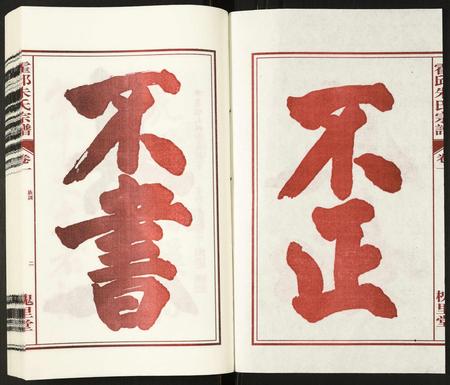 霍邱朱氏宗譜
卷一
不正
不書
槐里堂
霍邱朱氏宗譜
卷一
族訓
二
槐里堂